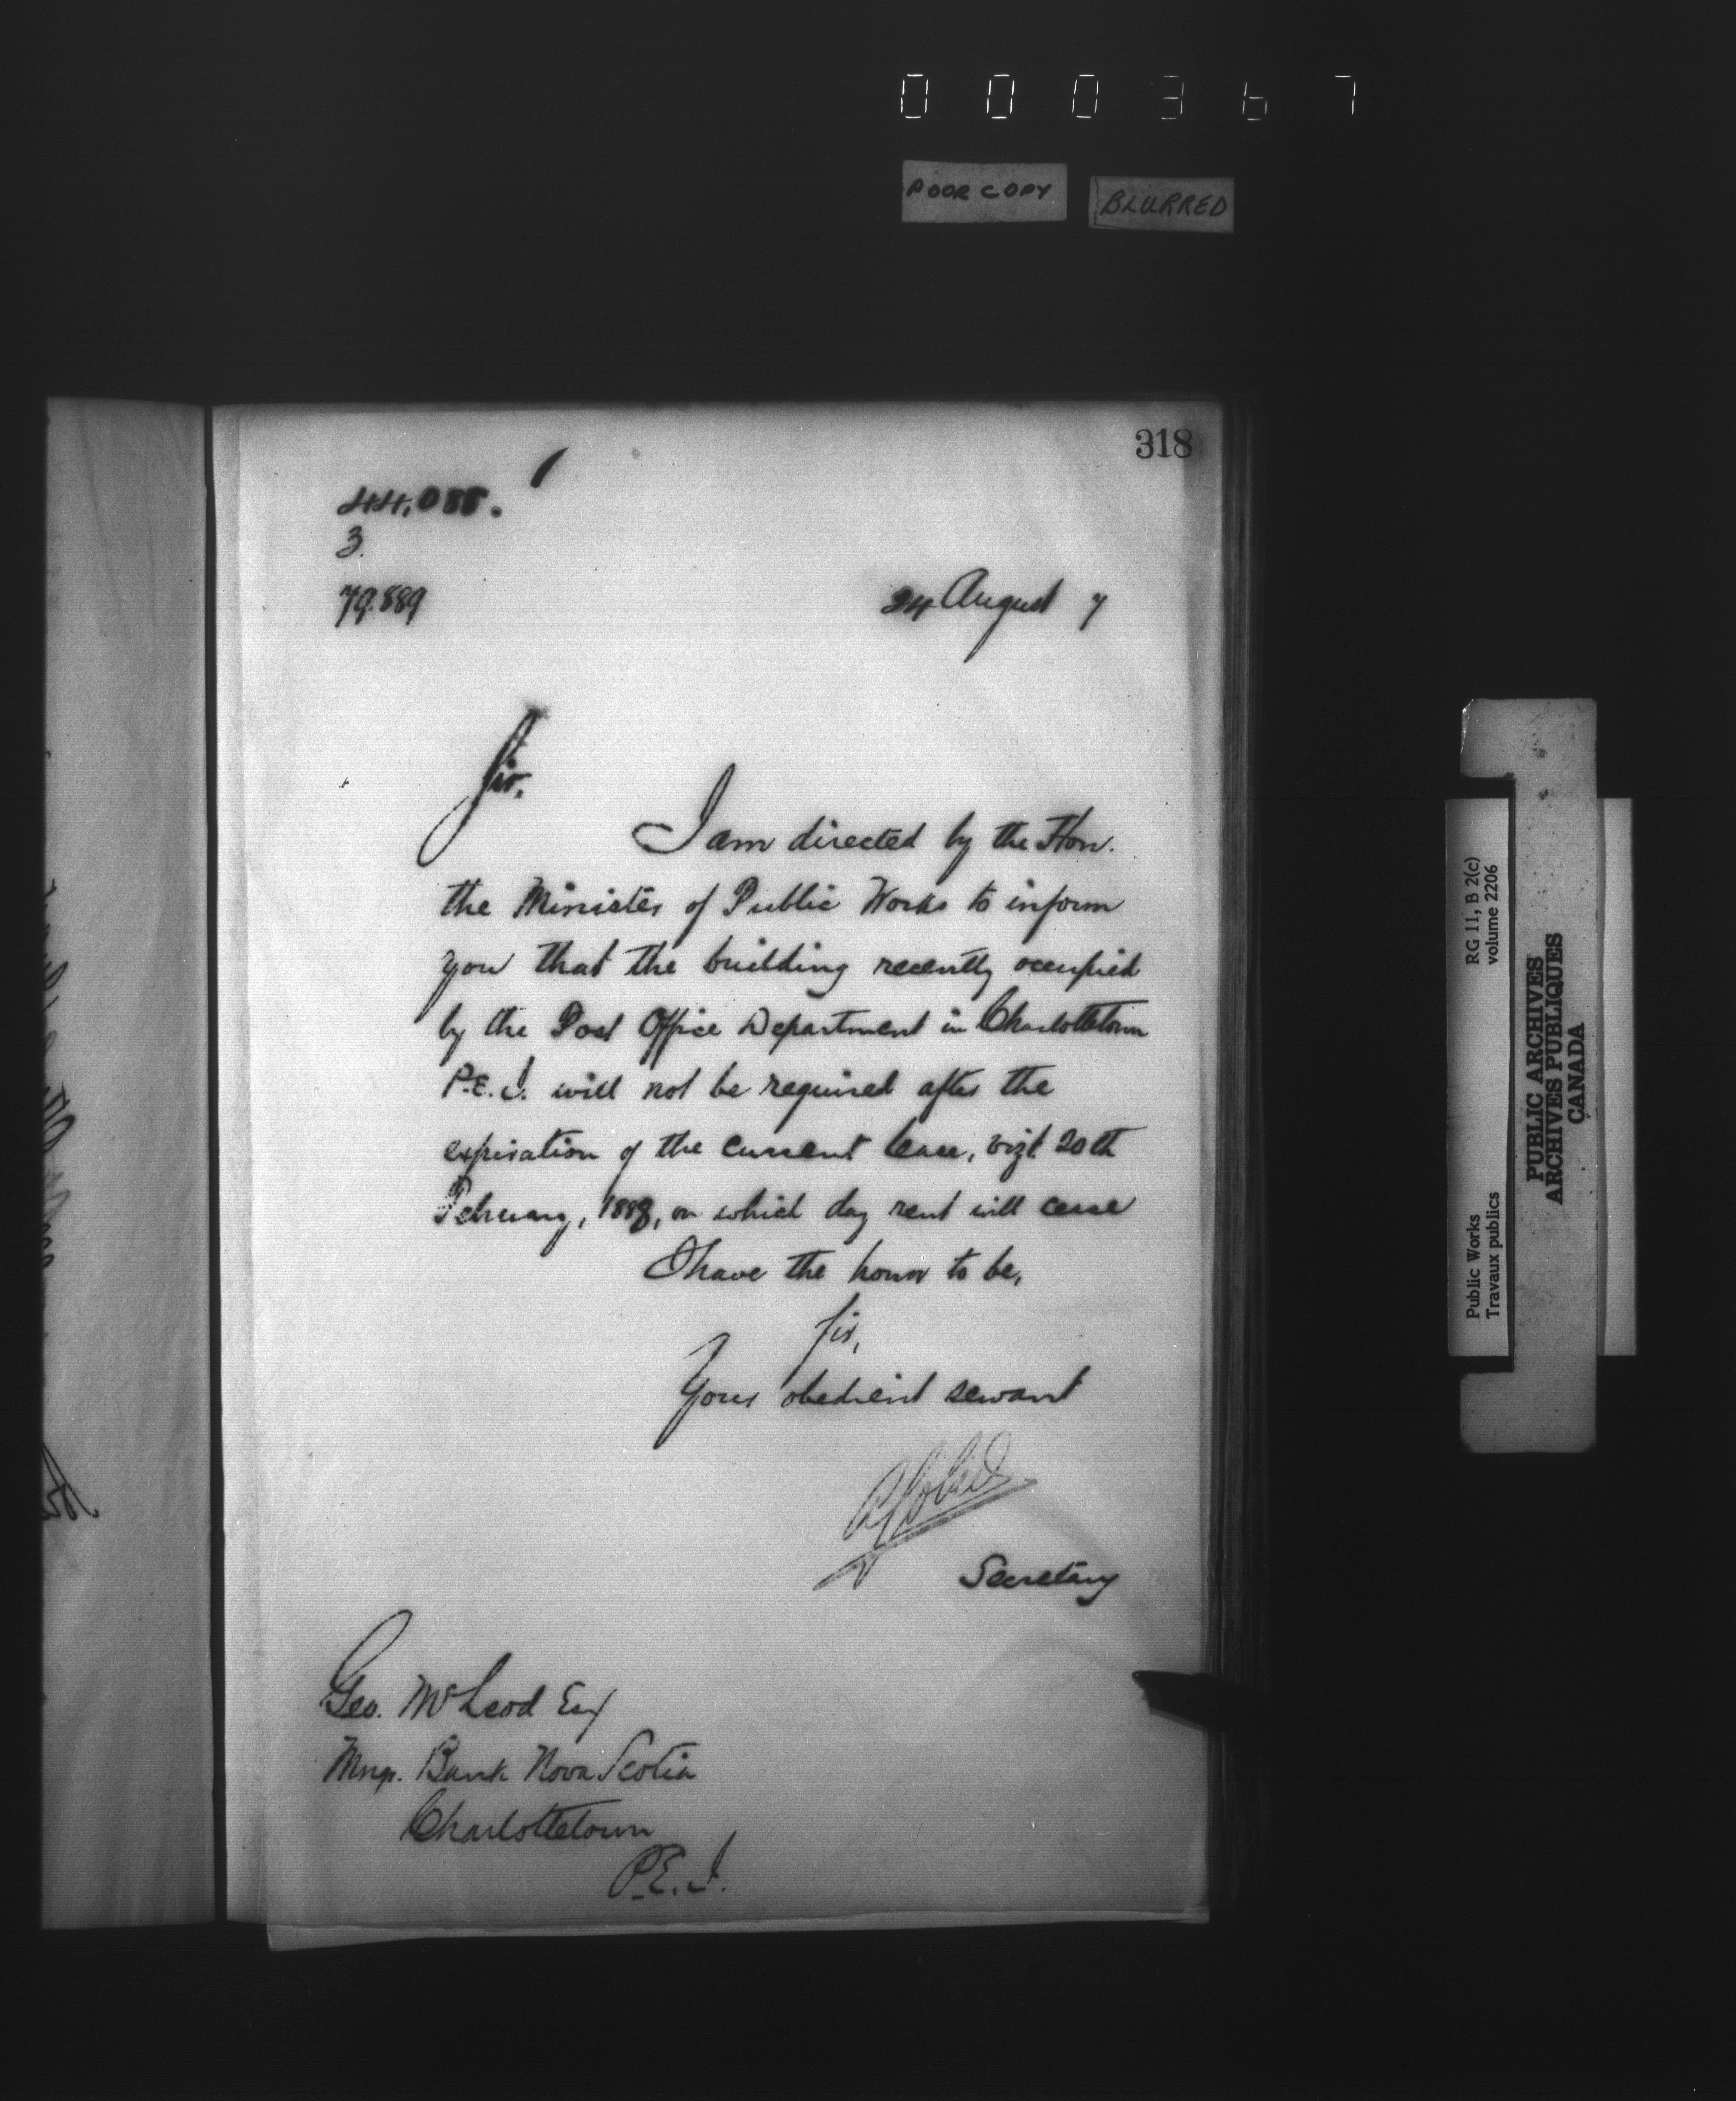 000367
POOR COPY
BLURRED
318
44,088.
3.
79.889
24 August 7
Sir,
I am directed by the Hon.
the Minister of Public Works to inform
you that the building recently occupied
by the Post Office Department in Charlottetown
P.E.I. will not be required after the
expiration of the current lease, vizt. 20th
February, 1888, on which day rent will cease
I have the honor to be,
Sir,
Your obedient servant
Secretary
Geo. McLeod Esq
Mngr. Bank Nova Scotia
Charlottetown
P.E.I.
RG 11, B 2(c)
volume 2206
Public Works
Travaux publics
PUBLIC ARCHIVES
ARCHIVES PUBLIQUES
CANADA